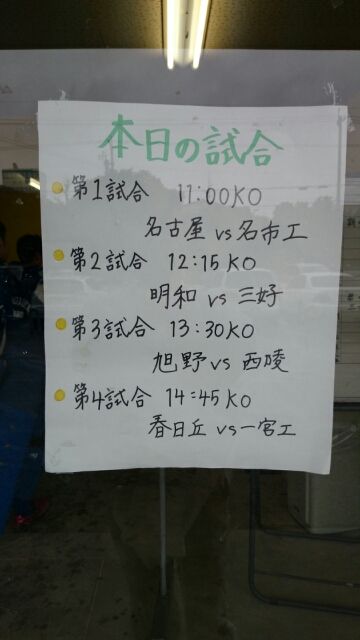 本日の試合
第1試合 11:00KO
名古屋 vs 名市工
第2試合 12:15KO
明和 vs 三好
第3試合 13:30KO
旭野 vs 西陵
第4試合 14:45KO
春日丘 vs 一宮工